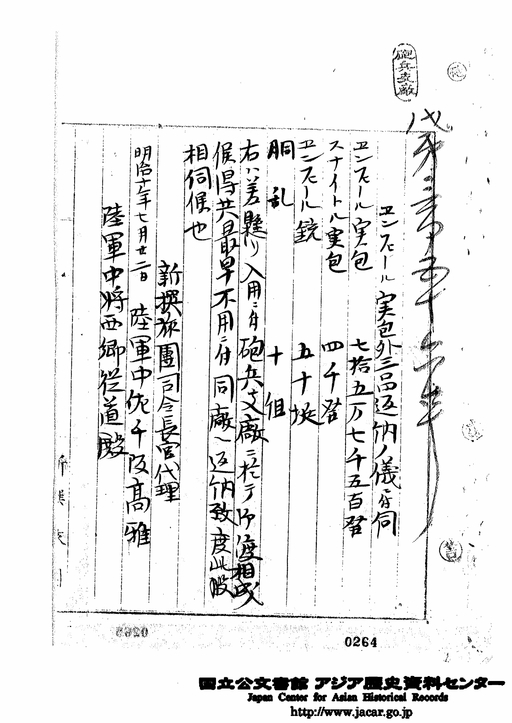 砲兵支廠
エンフヒール実包外三品返納ノ儀ニ付伺
エンフヒール実包 七拾五万七千五百発
スナイトル実包 四千発
エンフヒール銃 五十挺
胴乱 十組
右ハ差懸リ入用ニ付砲兵支廠ニ於テ御渡相成
候得共最早不用ニ付同廠ヘ返納致度此段
相伺候也
新撰旅團司令長官代理
明治十年七月廿二日 陸軍中佐千阪高雅
陸軍中将西郷従道殿
0264
国立公文書館 アジア歴史資料センター
Japan Center for Asian Historical Records
http://www.jacar.go.jp